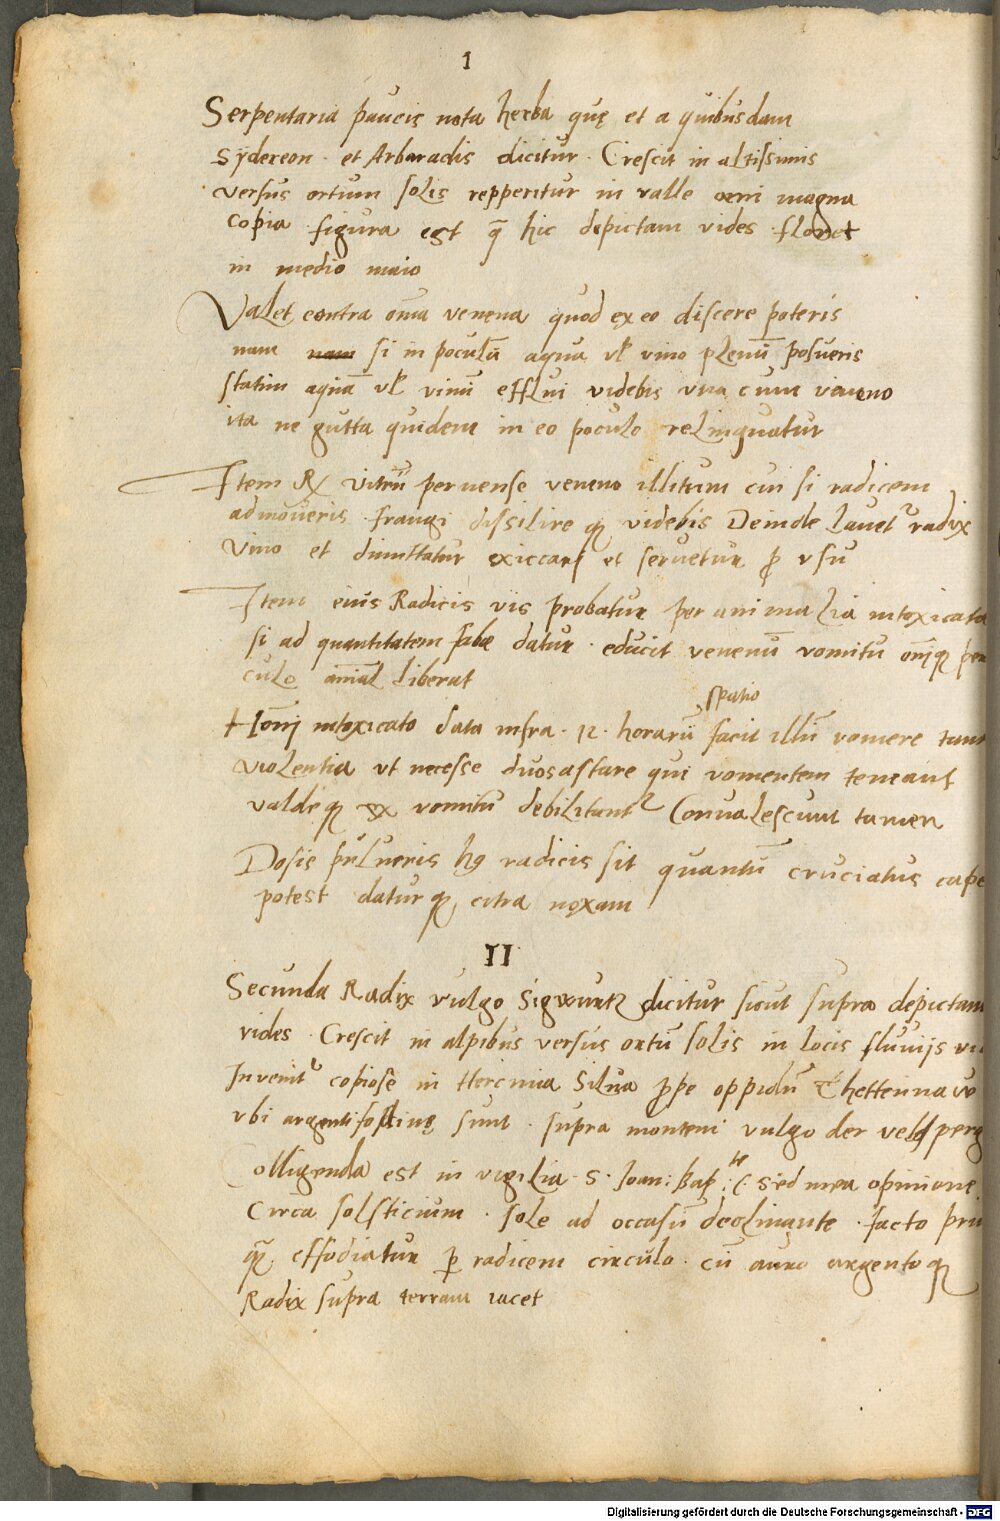 1
Serpentaria paucis nota herba quę et a quibusdam
Sÿdereon . et Arbaradis dicitur . Crescit in altissimis
versus ortum solis repperitur in valle œni magna
copia figura est q̃ hic depictam vides floret
in medio maio
Valet contra om̃ia venena quod ex eo discere poteris
nam nam si in poculũ aqua vł vino plenũ posueris
statim aquã vł vinũ efflui videbis vna cum veneno
ita ne gutta quidem in eo poculo relinquatur
Item ℞ vitrũ veneno illitum cui si radicem
admoveris frangi dissilireqꝫ videbis Deinde lauet᷑ radix
vino et dimittatur exiccari et servetur ꝓ vsu
Item eius Radicis vis probatur per animalia intoxicata
si ad quantitatem fabæ datur . educit venenũ vomitu om̃iqꝫ
culo aĩal liberat
spatio
Hom̃i intoxicato data infra . 12 . horarũ facit illũ vomere
violentia vt necesse duos astare qui vomentem teneant
valdeqꝫ ex vomitu debilitant᷑ Convalescunt tamen
Dosis pulueris hꝰ radicis sit quantũ cruciatus cape
potest daturqꝫ citra noxam
II
Secunda Radix vulgo Sigwurtz dicitur sicut supra depictam
vides . Crescit in alpibus versus ortũ solis in locis fluuijs
Invenit᷑ copiose in Hercinia Silua ꝓpe oppidũ
vbi argentifodinę sunt . supra montem vulgo der
Colligenda est in vigilia . S . Joan : Bap : Sed mea opinione
Circa solsticium . sole ad occasũ declinante . facto
effodiatur ꝑ radicem circulo . cũ auro argentoqꝫ
Radix supra terram iacet
Digitalisierung gefördert durch die Deutsche Forschungsgemeinschaft - DFG